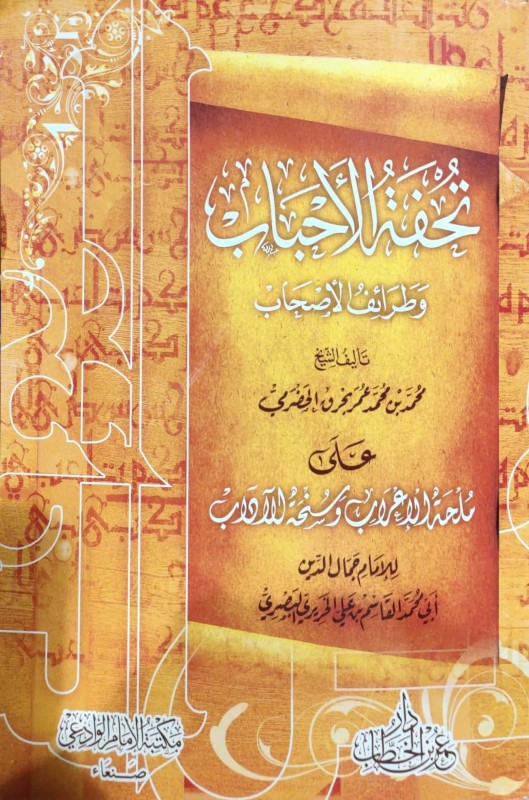 تُحْفَةُ الأَحْبَابِ
وَطَرَائِفُ الأَصْحَابِ
تَأليف الشيخ
محمد بن محمد عمر بحرق الحضرمي
عَلَى
مُلحَةُ الإِعْرَابِ وَسُنْخَةُ الآدَابِ
للإمام جمال الدين
أبي محمد القاسم بن علي الحريري البصري
دار
عمر بن الخطاب
مكتبة الإمام الوادعي
صنعاء